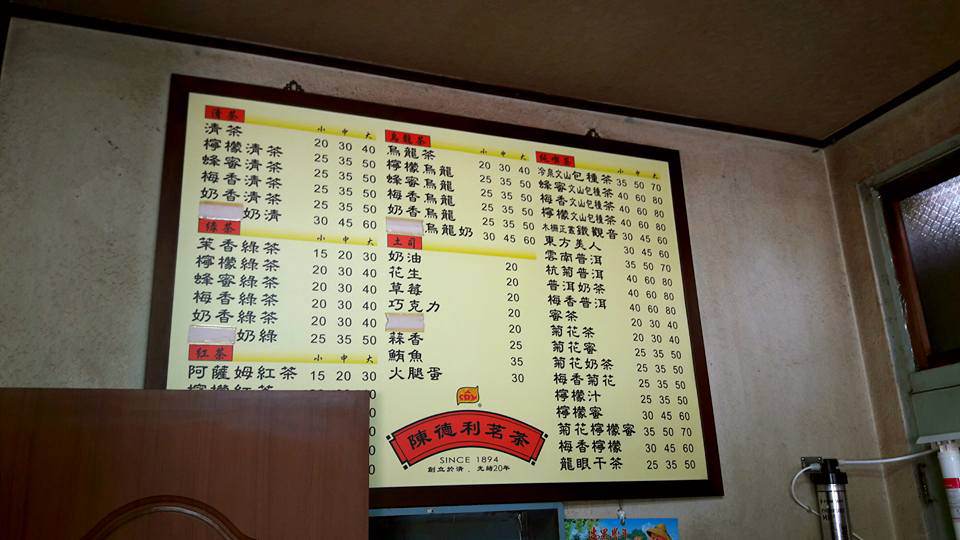 清茶 小 中 大
清茶 20 30 40
檸檬清茶 25 35 50
蜂蜜清茶 25 35 50
梅香清茶 25 35 50
奶香清茶 25 35 50
奶清 30 45 60
綠茶 小 中 大
茉香綠茶 15 20 30
檸檬綠茶 20 30 40
蜂蜜綠茶 20 30 40
梅香綠茶 20 30 40
奶香綠茶 20 30 40
奶綠 25 35 50
紅茶 小 中 大
阿薩姆紅茶 15 20 30
檸檬紅茶
烏龍茶 小 中 大
烏龍茶 20 30 40
檸檬烏龍 25 35 50
蜂蜜烏龍 25 35 50
梅香烏龍 25 35 50
奶香烏龍 25 35 50
烏龍奶 30 45 60
土司
奶油 20
花生 20
草莓 20
巧克力 20
20
蒜香 25
鮪魚 35
火腿蛋 30
陳德利茗茶
SINCE 1894
創立於清．光緒20年
純唯茶 小 中 大
冷泉文山包種茶 35 50 70
蜂蜜文山包種茶 40 60 80
梅香文山包種茶 40 60 80
檸檬文山包種茶 40 60 80
木柵正欉鐵觀音 30 45 60
東方美人 30 45 60
雲南普洱 35 50 70
杭菊普洱 40 60 80
普洱奶茶 40 60 80
梅香普洱 40 60 80
蜜茶 20 30 40
菊花茶 20 30 40
菊花蜜 25 35 50
菊花奶茶 25 35 50
梅香菊花 25 35 50
檸檬汁 25 35 50
檸檬蜜 30 45 60
菊花檸檬蜜 35 50 70
梅香檸檬 30 45 60
龍眼干茶 25 35 50